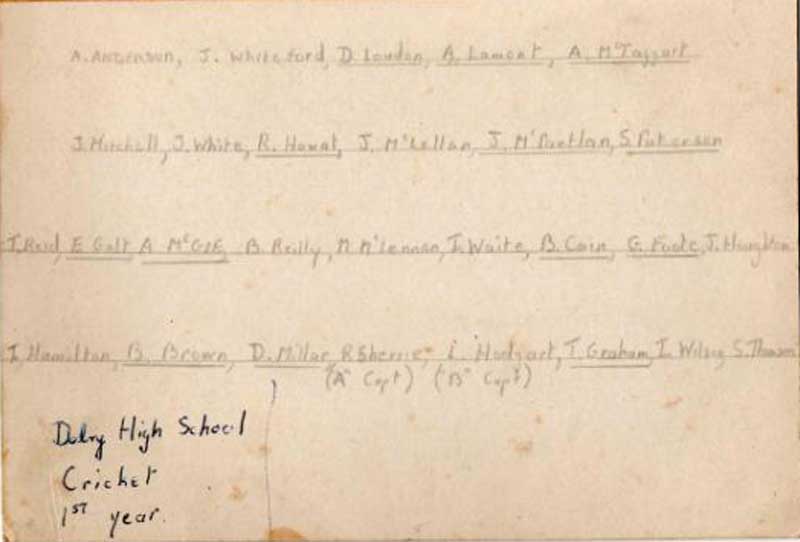 A. Anderson, J. Whiteford, D. Loudon, A. Lamont, A. McTaggart
J. Mitchell, J. White, R. Howat, J. McLellan, J. McPartlan, S. Paterson
J. Reid, E Galt, A McGEE, B. Reilly, M McLennan, I. Waite, B. Cain, G. Foote, J. Houghton
I. Hamilton, B. Brown, D. Millar, R Sherrie, L. Hodgart, T. Graham, I. Wilson, S. Thomson
("A" Capt) ("B" Capt)
Dalry High School
Cricket
1ST year.